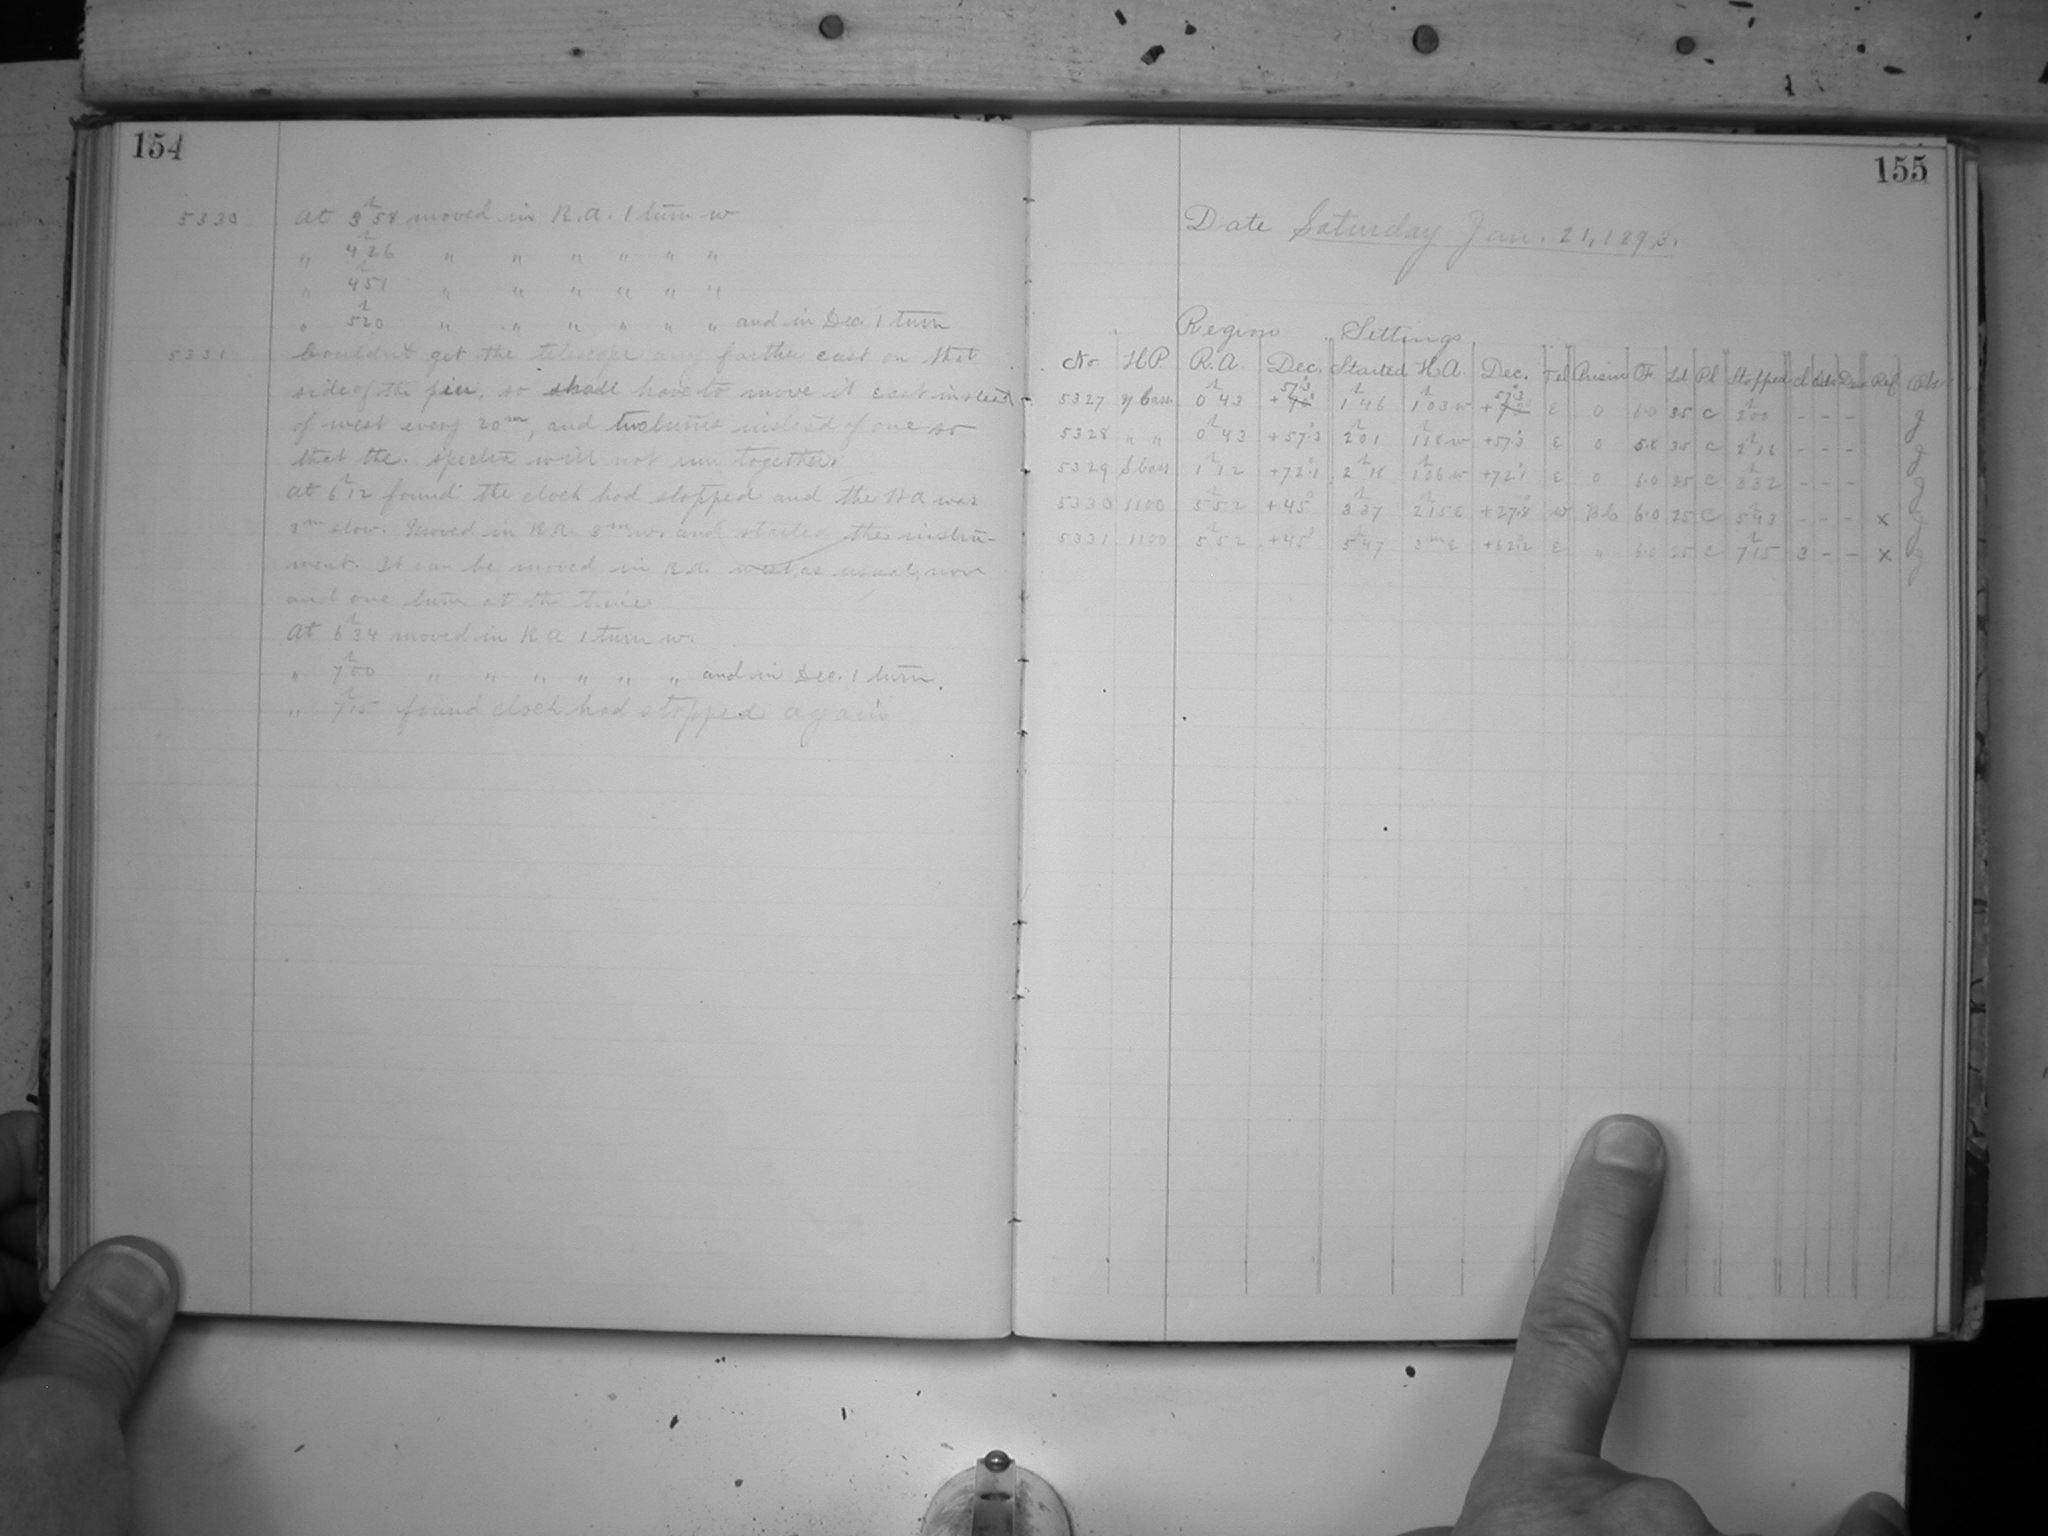 154
5330 At 3h58 moved in R.A. 1 turn w
" 4h26 " " " " " "
" 4h51 " " " " " "
" 5h20 " " " " " " and in Dec. 1 turn
5331 Couldn't get the telescope any farther east on that
side of the pier, so shall have to move it east instead
of west every 20m, and two turns instead of one so
that the spectra will not run together.
At 6h12 found the clock had stopped and the H A was
3m slow. Moved in R.A. 3m w. and started the instru-
ment. It can be moved in R.A. west, as usual, now
and one turn at the time.
At 6h34 moved in R A 1 turn w.
" 7h00 " " " " " " and in Dec. 1 turn.
" 7h15 found clock had stopped again
155
Date Saturday Jan. 21, 1893.
Region Settings
No. H.P. R.A. Dec. Started H.A. Dec. Tel Prism F Ld Pl Stopped Cl Ref Obs
57°.3 57°.3
5327 γ Cass. 0h43 + 1h46 1h03 w + E 0 6.0 35 C 2h00 - - - g
5328 " " 0h43 +57°.3 2h01 1h18 w +57°.3 E 0 5.8 35 C 2h16 - - - g
5329 Cass 1h12 +72°.1 2h18 1h06 w +72°.1 E 0 6.0 35 C 3h32 - - - g
5330 1100 5h52 +45° 3h37 2h15 E +27°.8 w 6.0 25 C 5h43 - - - x g
5331 1100 5h52 +45° 5h47 3m E +62°.2 E " 6.0 25 C 7h15 3 - - x g